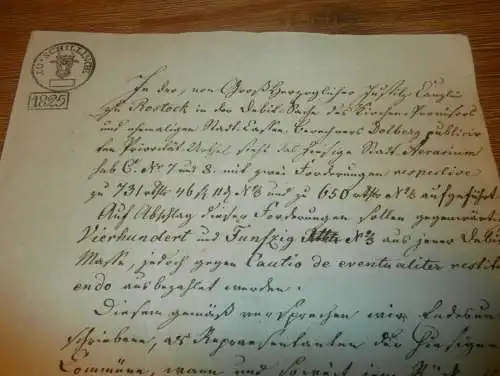 SCHILLINGE
1825
In der, von Großherzoglicher Justiz-Canzlei
zu Rostock in der Debit-Sache des Kirchen-Provisors
und ehemaligen Stadt-Cassen-Berechners Dolberg publicir
ten Priorität-Urtel steht das hiesige Stadt-Aerarium
sub C. No 7 und 8. mit zwei Forderungen respective
zu 731 46 ß 11 und zu 650 aufgeführt
Auf Abschlag dieser Forderungen sollen gegenwärtig
Vierhundert und Funfzig aus jener Debit
Masse, jedoch gegen Cautio de eventualiter restitu
endo ausbezahlt werden.
Diesem gemäß versprechen wir Endesun
schriebene, als Repraesentanten der hiesigen
Commüne, wann und